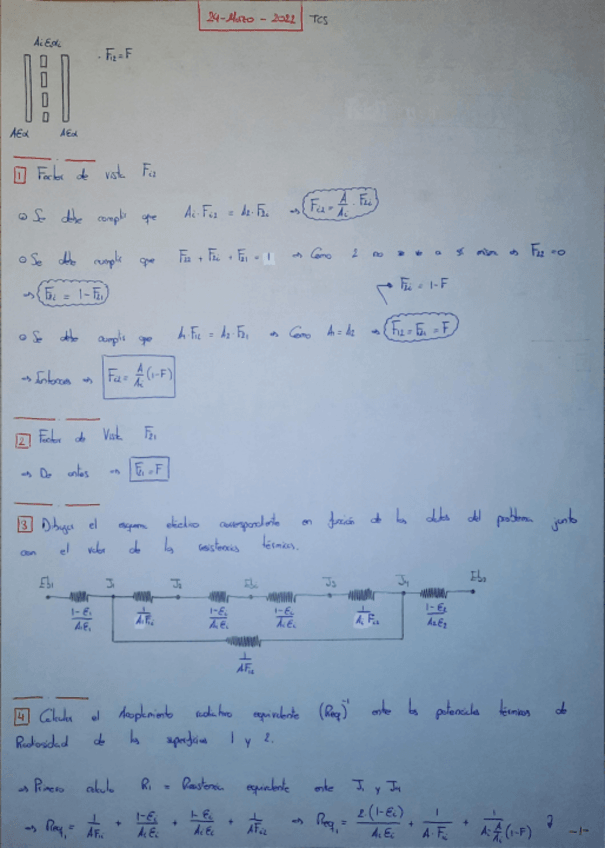 24-Marzo-2022 TCS
Ai Ei αi
· F12 = F
A E α A E α
1 Factor de vista Fi2
Se debe cumplir que Ai · Fi2 = A2 · F2i ⇒ Fi2 = A/Ai · F2i
Se debe cumplir que F22 + F2i + F21 = 1 ⇒ Como 2 no se ve a sí misma ⇒ F22 = 0
⇒ F2i = 1 - F21
F2i = 1 - F
Se debe cumplir que A1 · F12 = A2 · F21 ⇒ Como A1 = A2 ⇒ F12 = F21 = F
⇒ Entonces ⇒ Fi2 = A/Ai (1-F)
2 Factor de Vista F21
⇒ De antes ⇒ F21 = F
3 Dibujar el esquema eléctrico correspondiente en función de los datos del problema junto
con el valor de las resistencias térmicas.
Eb1 J1 J2 Ebi J3 J4 Eb2
1-E1/A1E1 1-Ei/AiEi 1-Ei/AiEi 1/Ai Fi2 1-E2/A2E2
1/AF12
4 Calcular el Acoplamiento radiativo equivalente (Req)⁻¹ entre los potenciales térmicos de
Radiosidad de las superficies 1 y 2.
⇒ Primero calculo R1 = Resistencia equivalente entre J1 y J4
⇒ Req1 = + 1-Ei/AiEi + 1-Ei/AiEi + ⇒ Req1 = 2(1-Ei)/AiEi + + 1/(Ai A/Ai (1-F))
-1-